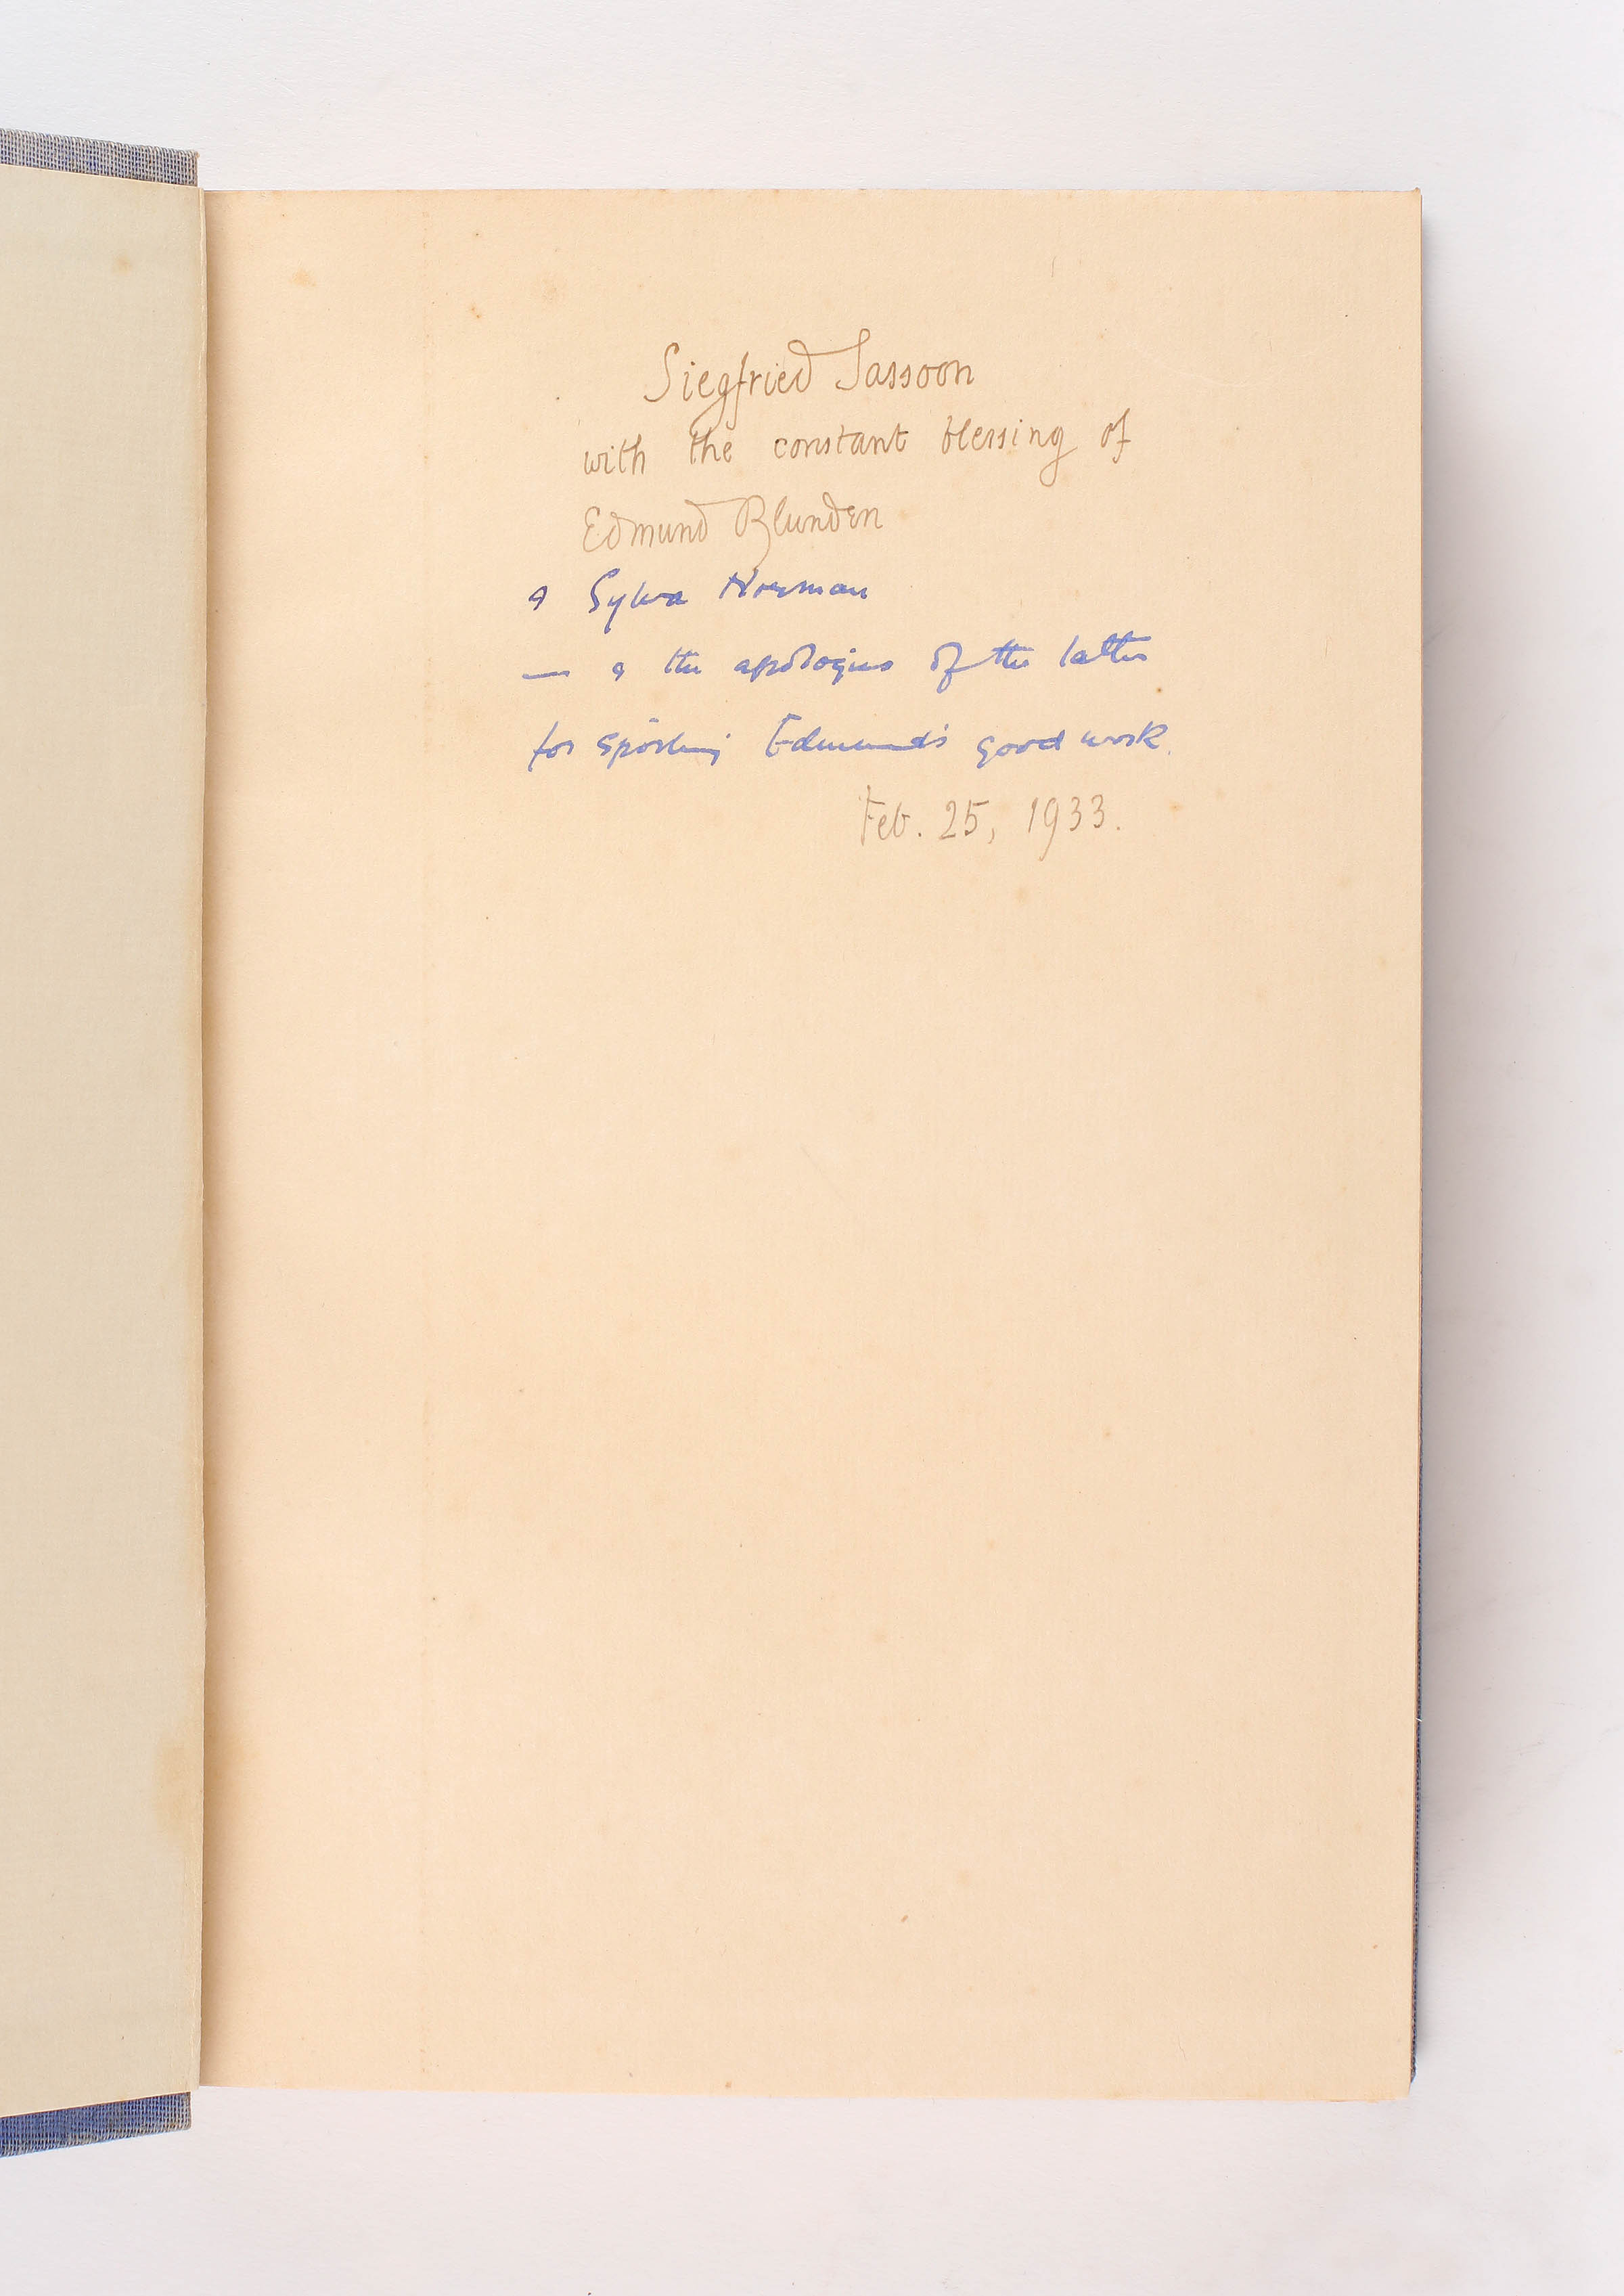 Siegfried Sassoon
with the constant blessing of
Edmund Blunden
& Sylva Norman
— & the apologies of the latter
for spoiling Edmund's good work.
Feb. 25, 1933.